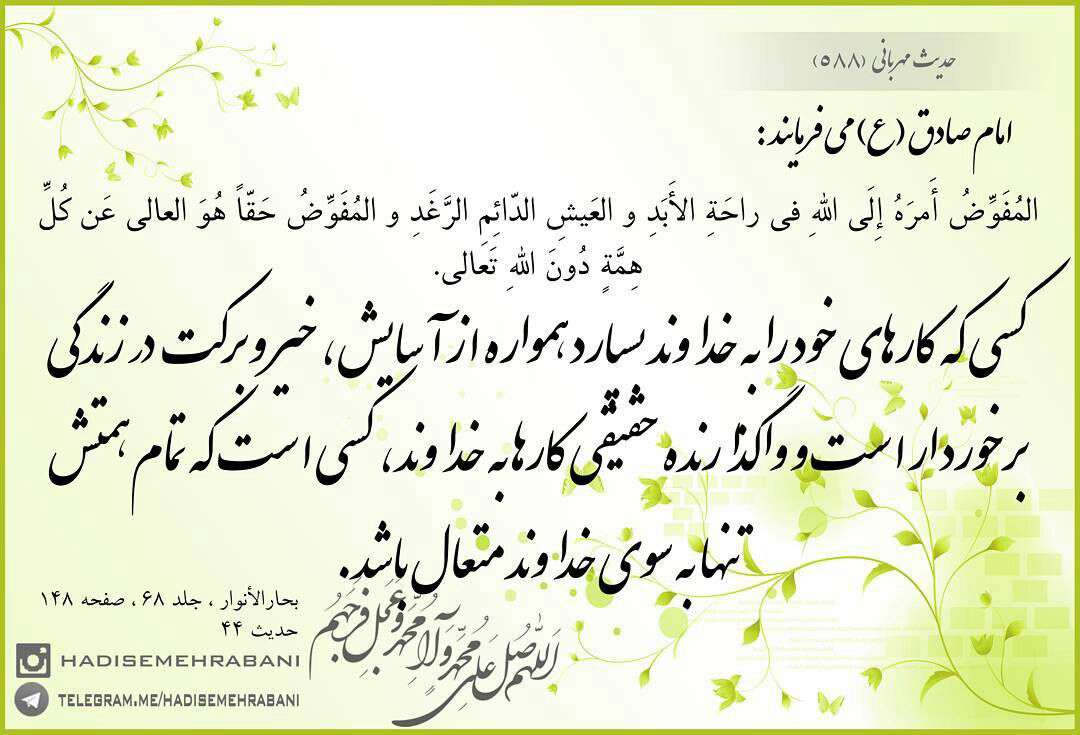 حدیث مهربانی (۵۸۸)
امام صادق (ع) می فرمایند:
المُفَوِّضُ أَمرَهُ إِلَی اللهِ فی راحَةِ الأَبَدِ و العَیشِ الدّائِمِ الرَّغَدِ و المُفَوِّضُ حَقّاً هُوَ العالی عَن کُلِّ
هِمَّةٍ دُونَ اللهِ تَعالی.
کسی که کارهای خود را به خداوند بسپارد همواره از آسایش، خیر و برکت در زندگی
برخوردار است و واگذارنده حقیقی کارها به خداوند، کسی است که تمام همتش
تنها به سوی خداوند متعال باشد.
بحارالأنوار ، جلد ۶۸ ، صفحه ۱۴۸
حدیث ۴۴
اَللّهُمَّ صَلِّ عَلی مُحَمَّدٍ وَ آلِ مُحَمَّدٍ وَ عَجِّل فَرَجَهُم
HADISEMEHRABANI
TELEGRAM.ME/HADISEMEHRABANI